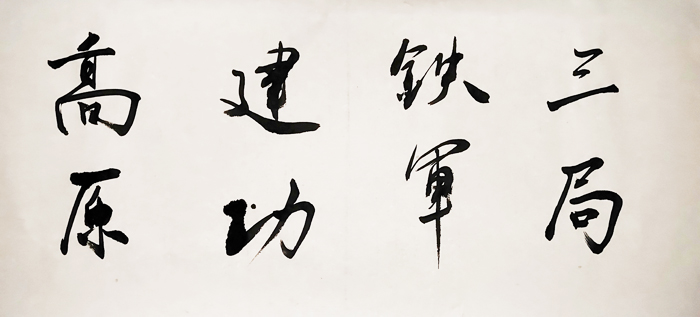 三局
鉄軍
建功
高原